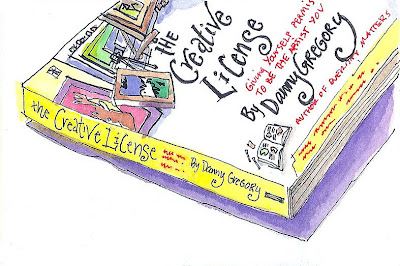 the
Creative
License
GIVING YOURSELF PERMIS
TO BE THE ARTIST YOU
By Danny Gregory
AUTHOR OF EVERYDAY MATTERS
the Creative License By Danny Gregory